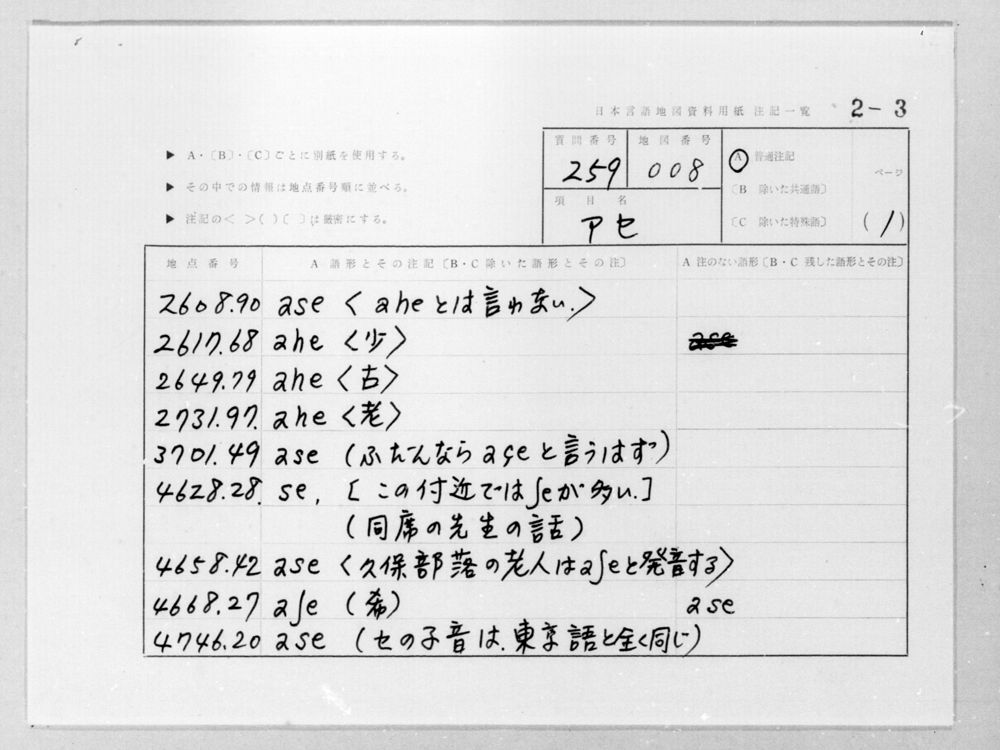 日本言語地図資料用紙 注記一覧 2-3
▶ A・〔B〕・〔C〕ごとに別紙を使用する。
▶ その中での情報は地点番号順に並べる。
▶ 注記の< >( )〔 〕は厳密にする。
質問番号 地図番号
259 008
項目名
アセ
A 普通注記
〔B 除いた共通語〕
〔C 除いた特殊語〕
ページ
(1)
地点番号 A 語形とその注記〔B・C 除いた語形とその注〕 A 注のない語形〔B・C 残した語形とその注〕
2608.90 ase <aheとは言わない.>
2617.68 ahe <少> ase
2649.79 ahe <古>
2731.97. ahe <老>
3701.49 ase (ふだんならaçeと言うはず)
4628.28. se, [この付近ではʃeが多い.]
(同席の先生の話)
4658.42 ase <久保部落の老人はaʃeと発音する>
4668.27 aʃe (希) ase
4746.20 ase (セの子音は.東京語と全く同じ)